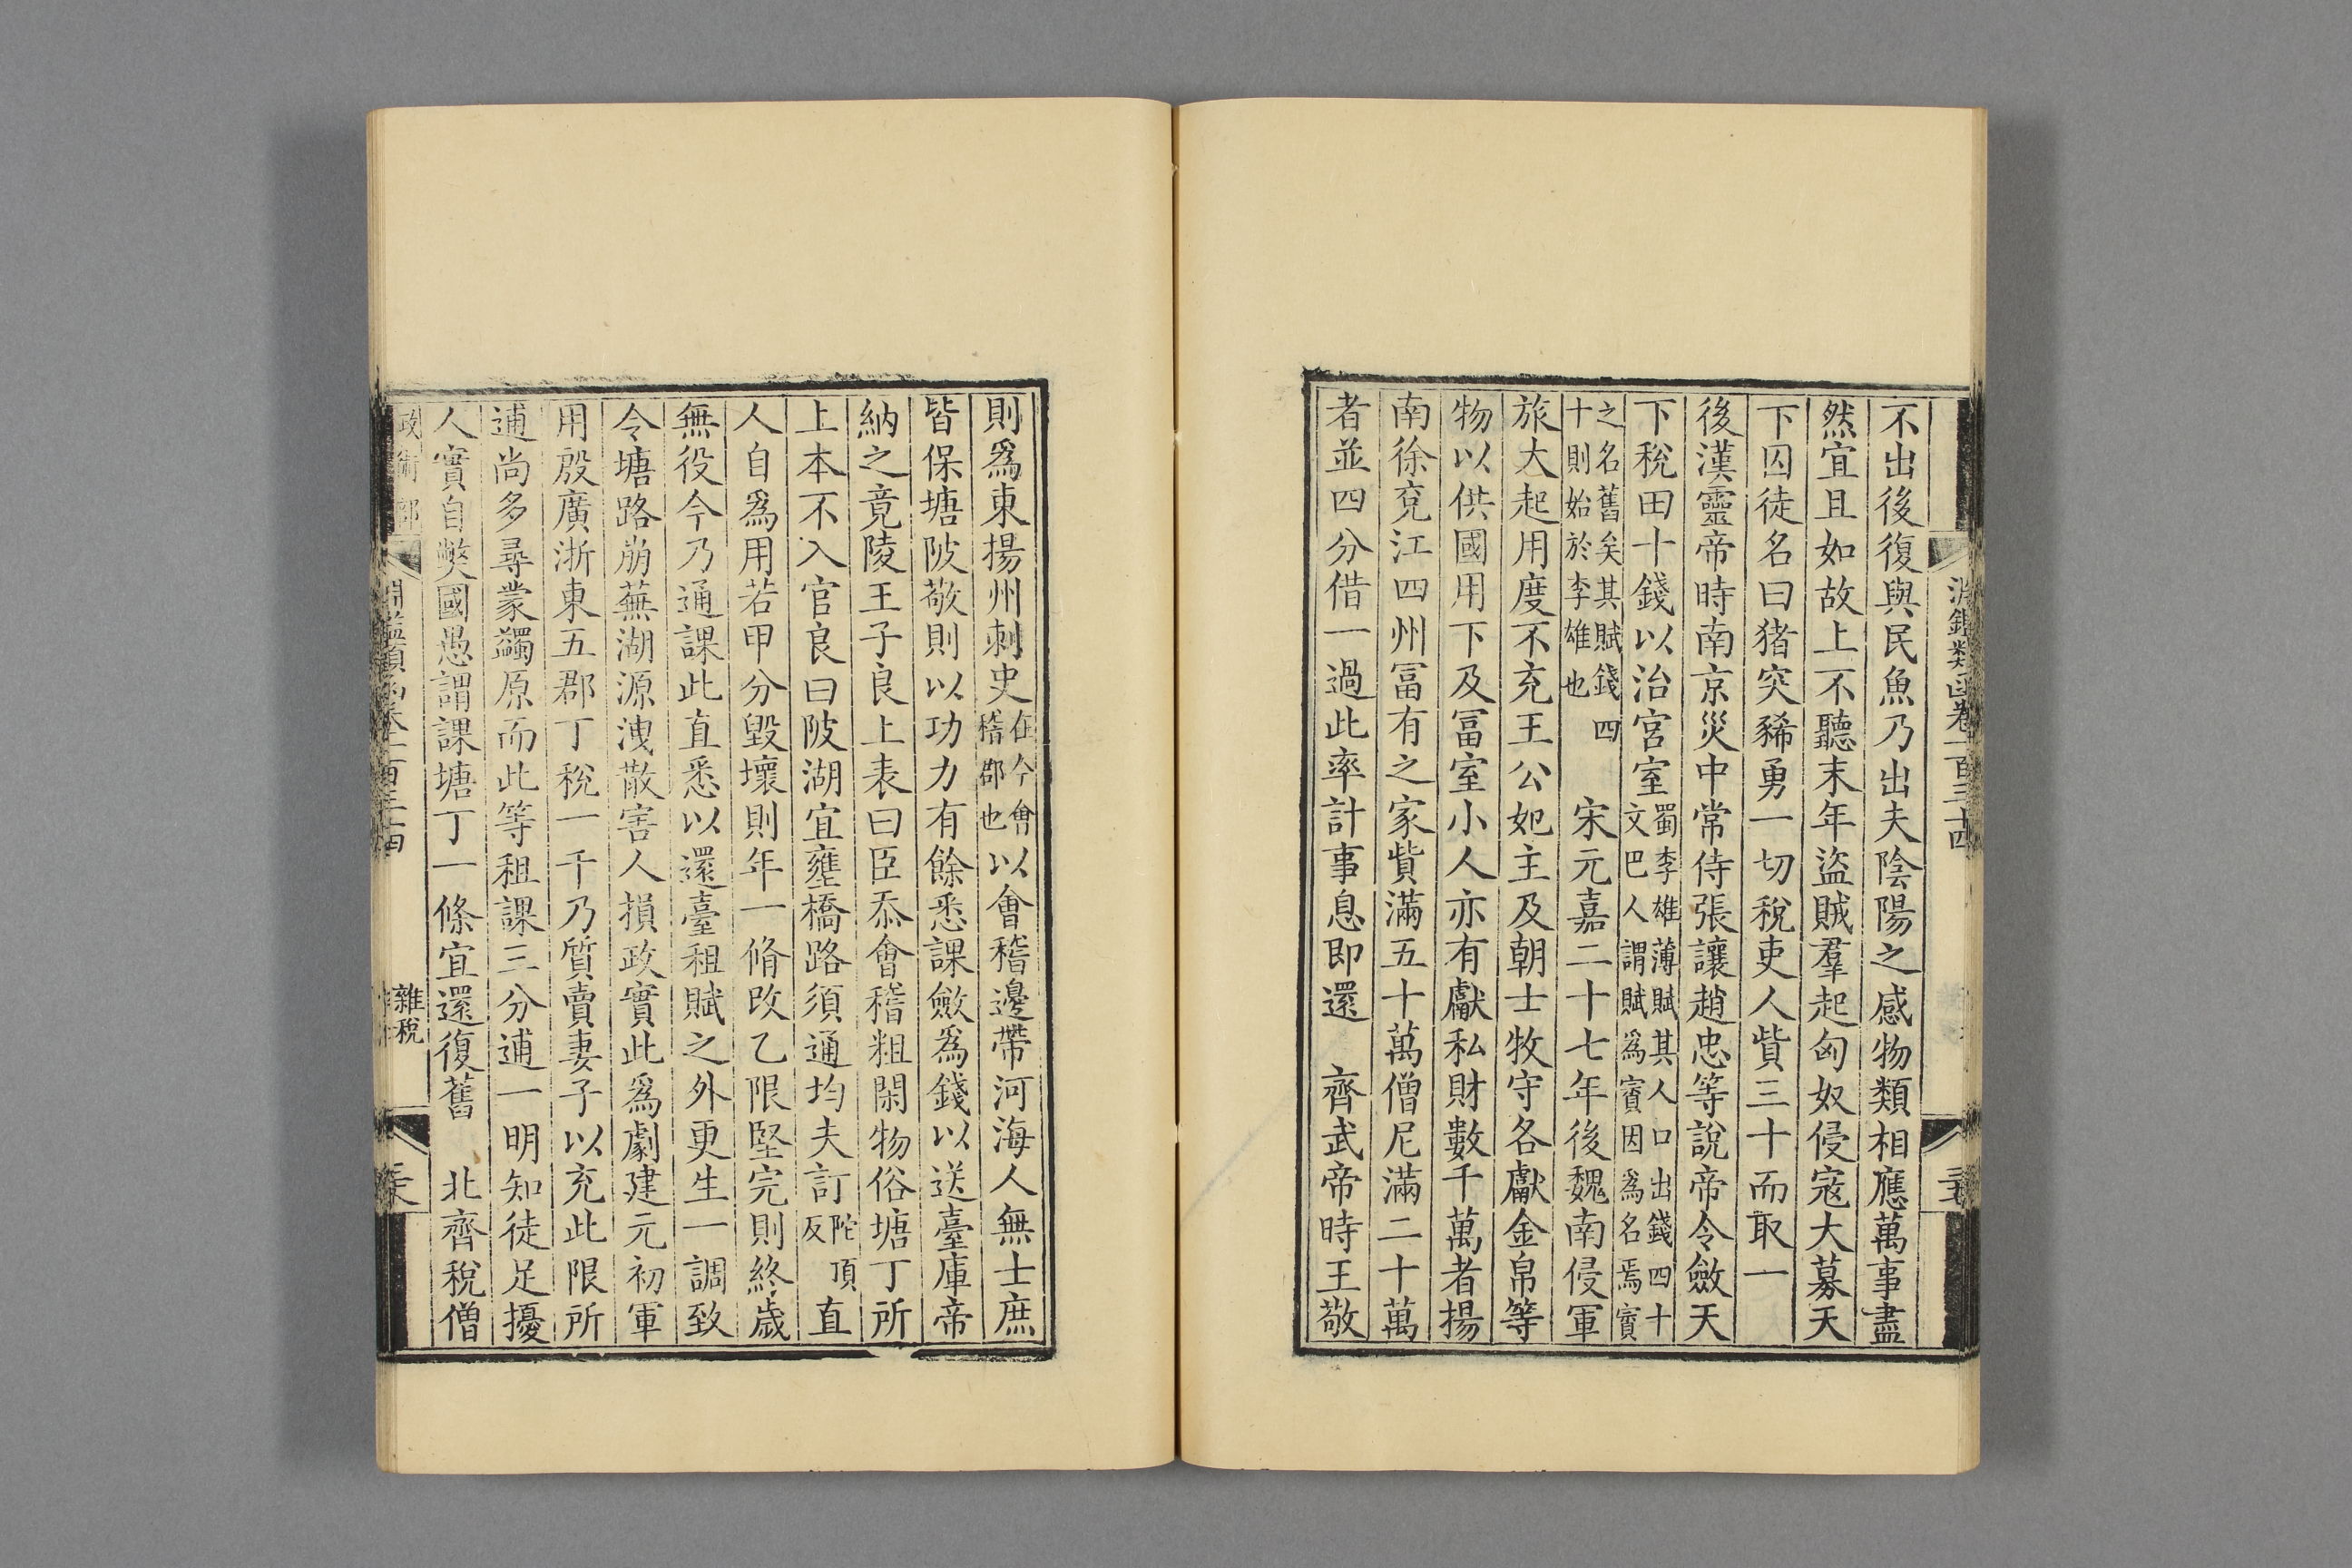 淵鑑類函卷一百三十四
不出後復與民魚乃出夫陰陽之感物類相應萬事盡
然宜且如故上不聽末年盜賊羣起匈奴侵寇大募天
下囚徒名曰猪突豨勇一切稅吏人貲三十而取一
後漢靈帝時南京災中常侍張讓趙忠等說帝令斂天
下稅田十錢以治宮室蜀李雄薄賦其人口出錢四十文巴人謂賦爲賨因爲名焉賨
之名舊矣其賦錢四十則始於李雄也 宋元嘉二十七年後魏南侵軍
旅大起用度不充王公妃主及朝士牧守各獻金帛等
物以供國用下及冨室小人亦有獻私財數千萬者揚
南徐兗江四州冨有之家貲滿五十萬僧尼滿二十萬
者並四分借一過此率計事息即還 齊武帝時王敬
則爲東揚州刺史在今會稽郡也以會稽邊帶河海人無士庶
皆保塘陂敬則以功力有餘悉課斂爲錢以送臺庫帝
納之竟陵王子良上表曰臣忝會稽粗閑物俗塘丁所
上本不入官良曰陂湖宜壅橋路須通均夫訂陀頂反直
人自爲用若甲分毀壞則年一脩改乙限堅完則終歲
無役今乃通課此直悉以還臺租賦之外更生一調致
令塘路崩蕪湖源洩散害人損政實此爲劇建元初軍
用殷廣浙東五郡丁稅一千乃質賣妻子以充此限所
逋尚多尋蒙蠲原而此等租課三分逋一明知徒足擾
人實自弊國愚謂課塘丁一條宜還復舊 北齊稅僧
政術部 淵鑑類函卷一百三十四 雜稅